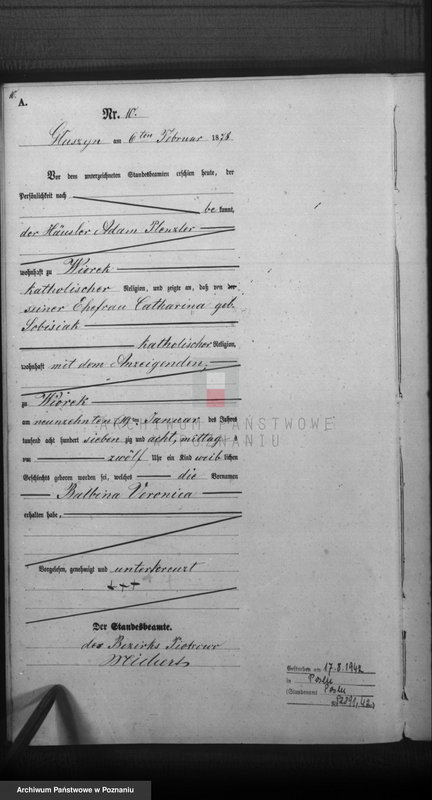 10.
A.
Nr. 10.
Gluszyn am 6ten Februar 1878
Vor dem unterzeichneten Standesbeamten erschien heute, der
Persönlichkeit nach
be kannt,
der Häusler Adam Flenzler
wohnhaft zu Wiorek
katholischer Religion, und zeigte an, daß von der
seiner Ehefrau Catharina geb.
Sobisiak
katholischer Religion,
wohnhaft mit dem Anzeigenden,
zu Wiorek
am neunzehnten (19ten) Januar des Jahres
tausend acht hundert sieben zig und acht, mittag s
um zwölf Uhr ein Kind weib lichen
Geschlechts geboren worden sei, welches die Vornamen
Balbina Veronica
erhalten habe,
Vorgelesen, genehmigt und unterkreuzt
+++
Der Standesbeamte.
des Bezirks Piotrowo
Gestorben am 17.8.1942
in Posen
(Standesamt Posen
ARCHIWUM PAŃSTWOWE
W POZNANIU
Archiwum Państwowe w Poznaniu